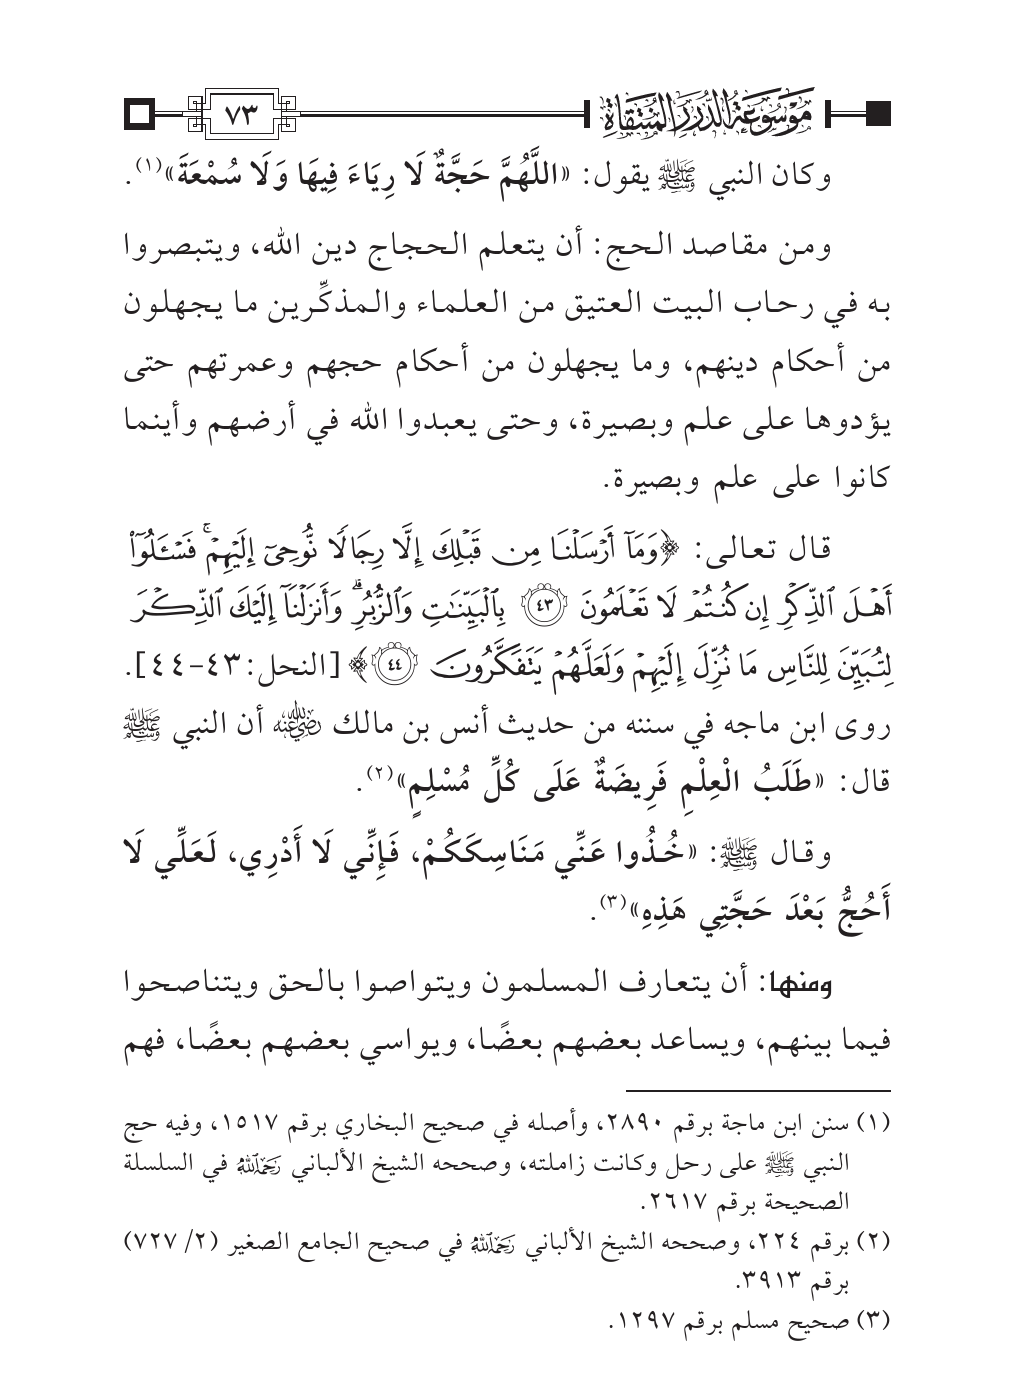 موسوعة الدرر المنتقاة
٧٣
وكان النبي ﷺ يقول: «اللَّهُمَّ حَجَّةٌ لَا رِيَاءَ فِيهَا وَلَا سُمْعَةَ»(١).
ومن مقاصد الحج: أن يتعلم الحجاج دين الله، ويتبصروا
به في رحاب البيت العتيق من العلماء والمذكِّرين ما يجهلون
من أحكام دينهم، وما يجهلون من أحكام حجهم وعمرتهم حتى
يؤدوها على علم وبصيرة، وحتى يعبدوا الله في أرضهم وأينما
كانوا على علم وبصيرة.
قال تعالى: ﴿وَمَآ أَرْسَلْنَا مِن قَبْلِكَ إِلَّا رِجَالًا نُّوحِىٓ إِلَيْهِمْ ۚ فَسْـَٔلُوٓا۟
أَهْلَ ٱلذِّكْرِ إِن كُنتُمْ لَا تَعْلَمُونَ ٤٣ بِٱلْبَيِّنَـٰتِ وَٱلزُّبُرِ ۗ وَأَنزَلْنَآ إِلَيْكَ ٱلذِّكْرَ
لِتُبَيِّنَ لِلنَّاسِ مَا نُزِّلَ إِلَيْهِمْ وَلَعَلَّهُمْ يَتَفَكَّرُونَ ٤٤﴾ [النحل: ٤٣-٤٤].
روى ابن ماجه في سننه من حديث أنس بن مالك رضي الله عنه أن النبي ﷺ
قال: «طَلَبُ الْعِلْمِ فَرِيضَةٌ عَلَى كُلِّ مُسْلِمٍ»(٢).
وقال ﷺ: «خُذُوا عَنِّي مَنَاسِكَكُمْ، فَإِنِّي لَا أَدْرِي، لَعَلِّي لَا
أَحُجُّ بَعْدَ حَجَّتِي هَذِهِ»(٣).
ومنها: أن يتعارف المسلمون ويتواصوا بالحق ويتناصحوا
فيما بينهم، ويساعد بعضهم بعضًا، ويواسي بعضهم بعضًا، فهم
(١) سنن ابن ماجة برقم ٢٨٩٠، وأصله في صحيح البخاري برقم ١٥١٧، وفيه حج
النبي ﷺ على رحل وكانت زاملته، وصححه الشيخ الألباني رحمه الله في السلسلة
الصحيحة برقم ٢٦١٧.
(٢) برقم ٢٢٤، وصححه الشيخ الألباني رحمه الله في صحيح الجامع الصغير (٢/ ٧٢٧)
برقم ٣٩١٣.
(٣) صحيح مسلم برقم ١٢٩٧.